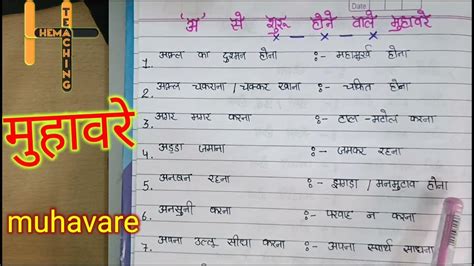 TEMACHING
HEMA
Date
'अ' से शुरू होने वाले मुहावरे
1. अक्ल का दुश्मन होना :- महामूर्ख होना
2. अक्ल चकराना / चक्कर खाना :- चकित होना
3. अगर मगर करना :- टाल-मटोल करना
4. अड्डा जमाना :- जमकर रहना
5. अनबन रहना :- झगड़ा / मनमुटाव होना
6. अनसुनी करना :- परवाह न करना
7. अपना उल्लू सीधा करना :- अपना स्वार्थ साधना
मुहावरे
muhavare